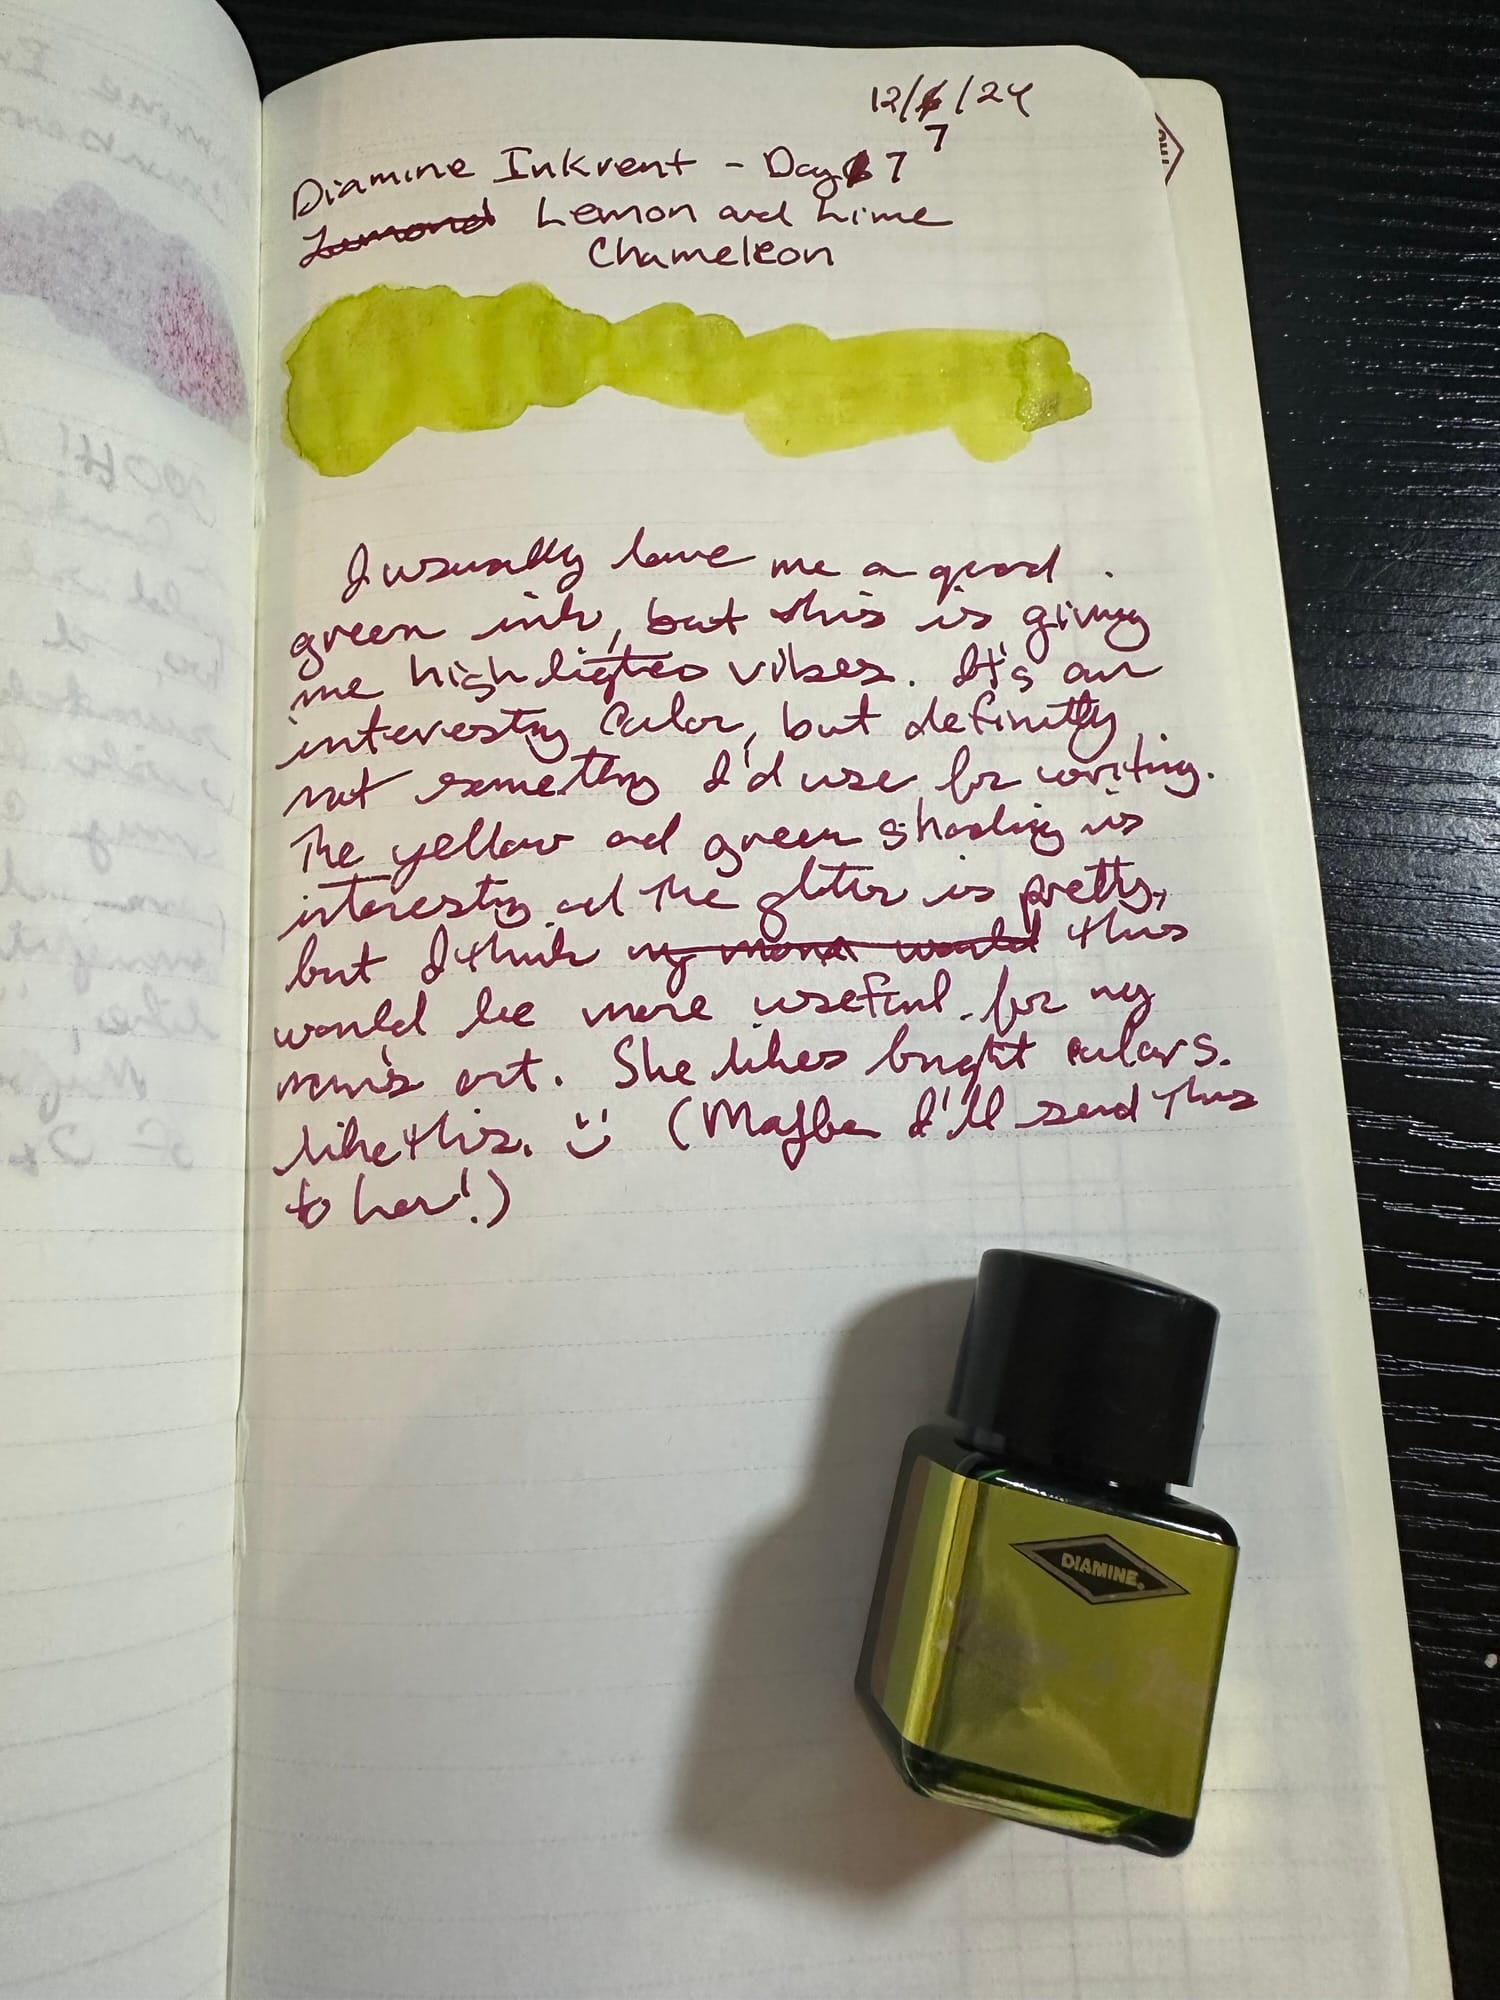 12/6/24
7
Diamine Inkvent - Day 6 7
Lemond Lemon and Lime
Chameleon
I usually love me a good
green ink, but this is giving
me highlighter vibes. It's an
interesting color, but definitly
not something I'd use for writing.
The yellow and green shading is
interesting and the glitter is pretty,
but I think my mom would this
would be more useful for my
mom's art. She likes bright colors
like this. :) (Maybe I'll send this
to her!)
DIAMINE